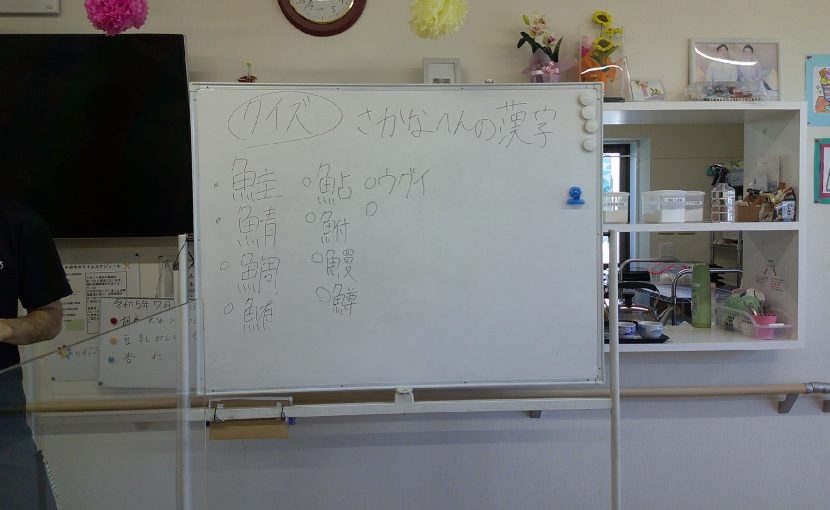 クイズ さかなへんの漢字
鮭
鯖
鯛
鮪
鮎
鮒
鰻
鱒
ウグイ
令和5年7月